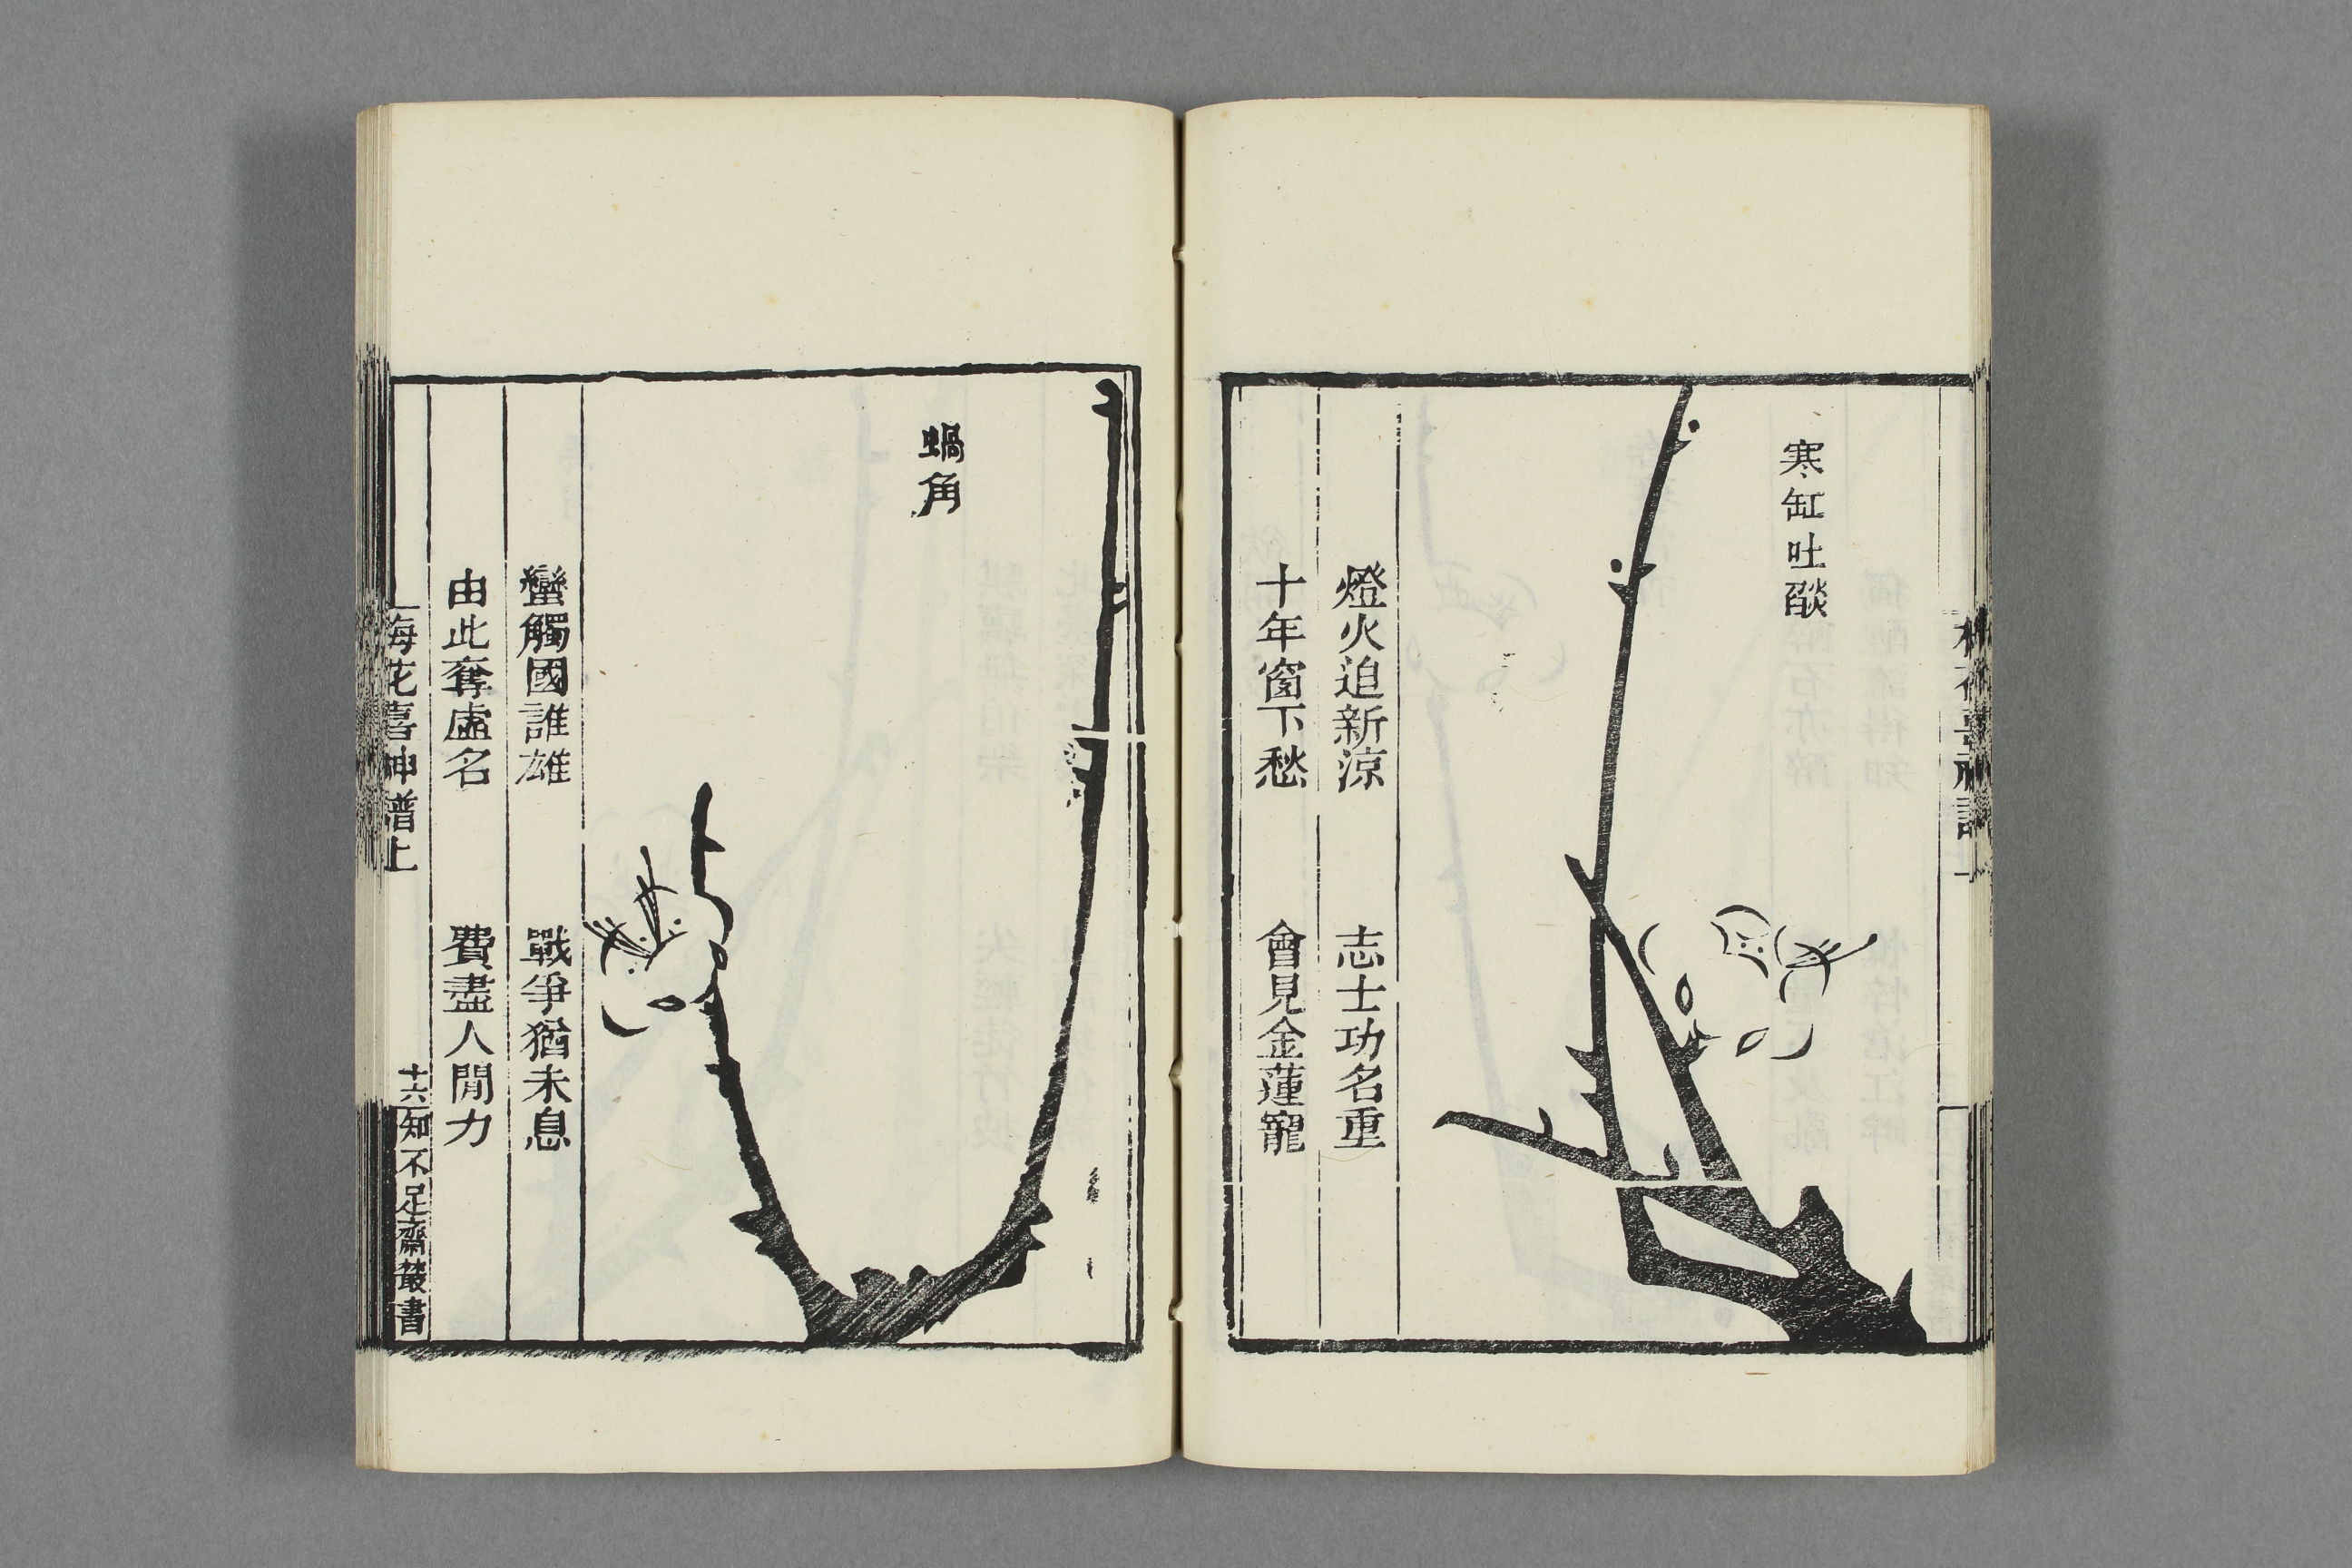 寒缸吐燄
燈火迫新涼　志士功名重
十年窗下愁　會見金蓮寵
蝸角
蠻觸國誰雄　戰爭猶未息
由此奪虛名　費盡人閒力
梅花喜神譜上　十六　知不足齋叢書